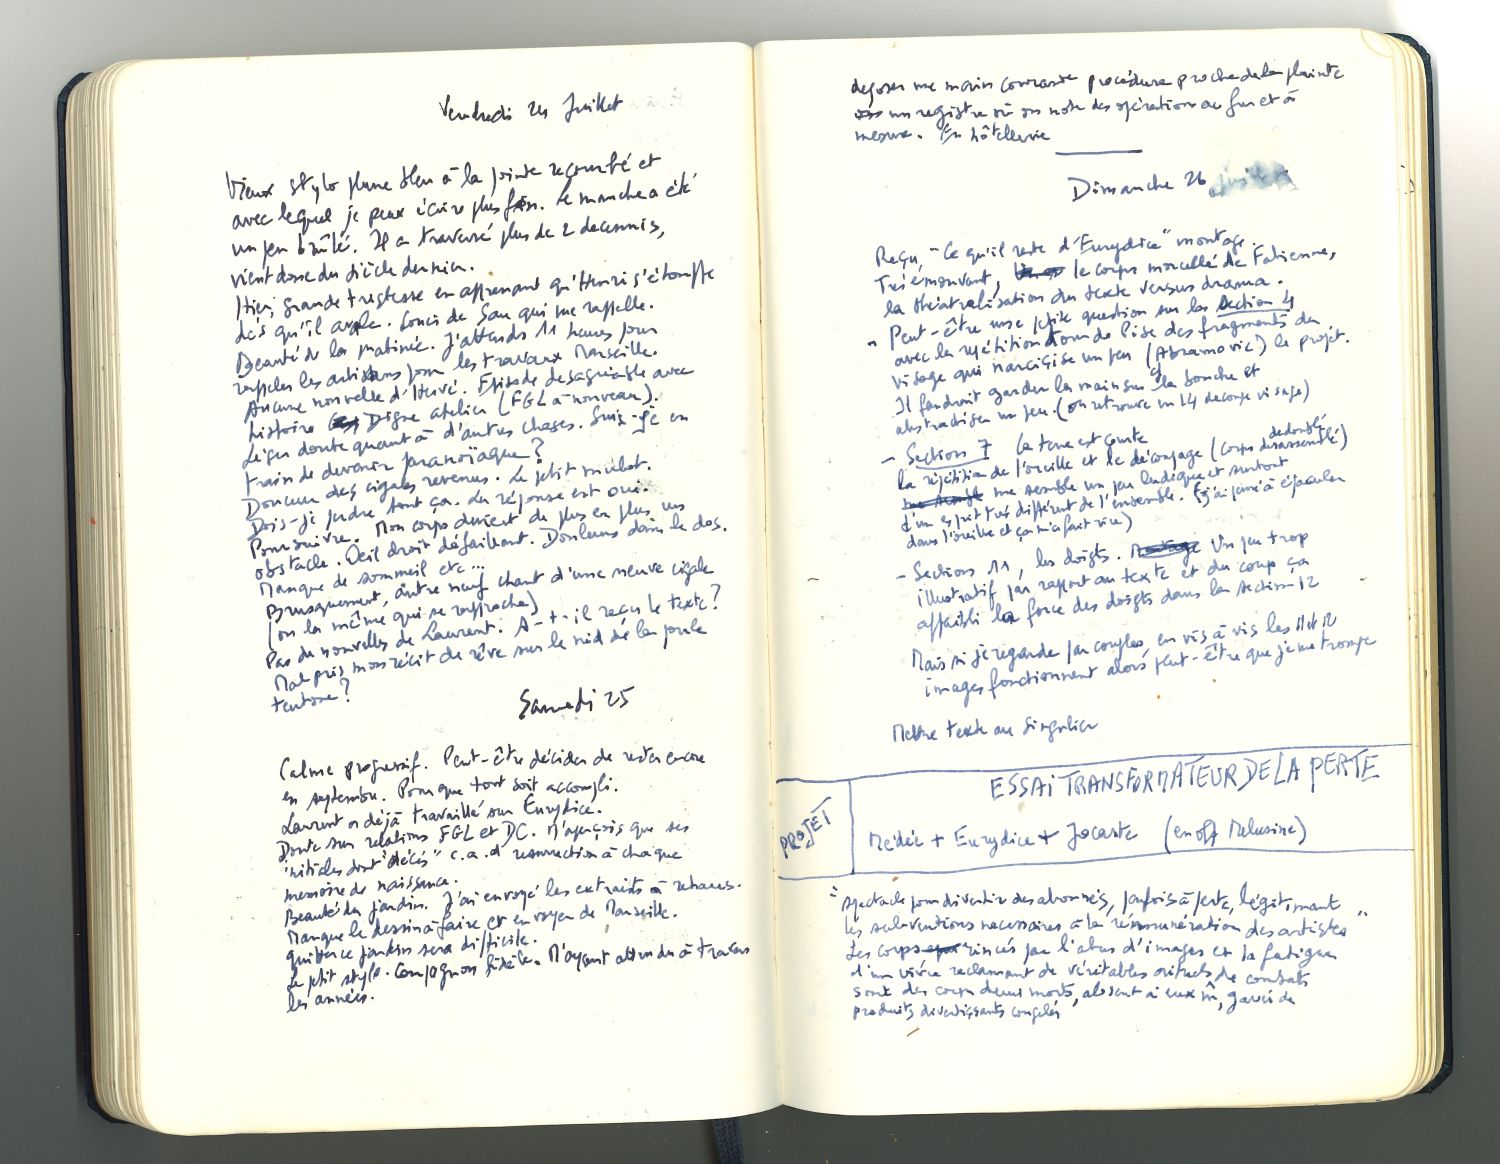 Vendredi 24 Juillet
Vieux stylo plume bleu à la pointe recourbé et
avec lequel je peux écrire plus fin. Le manche a été
un peu brûlé. Il a traversé plus de 2 decennis,
vient donc du siècle dernier.
Hier, grande tristesse en apprenant qu'Henri s'étouffe
dès qu'il avale. Soucis de San qui me rappelle.
Beauté de la matinée. J'attends 11 heures pour
rappeler les artisans pour les travaux Marseille.
Aucune nouvelle d'Hervé. Episode desagréable avec
histoire Digne atelier (FGL à nouveau).
Léger doute quant à d'autres choses. Suis-je en
train de devenir paranoïaque ?
Douceur des cigales revenues. Le petit mulot.
Dois-je perdre tout ça. La réponse est oui.
Poursuivre. Mon corps devient de plus en plus un
obstacle. Oeil droit défaillant. Douleurs dans le dos.
Manque de sommeil etc...
Brusquement, autre neuf chant d'une neuve cigale
(ou la même qui se rapproche)
Pas de nouvelles de Laurent. A-t-il reçu le texte ?
Mal pris mon récit de rêve sur le nid de la poule
teutone ?
Samedi 25
Calme progressif. Peut-être décider de rester encore
en septembre. Pour que tout soit accompli.
Laurent a déjà travaillé sur Eurydice.
Doute sur relations FGL et DC. M'aperçois que ses
initiales dont "décés" c.a.d resurrection à chaque
memoire de naissance.
Beauté du jardin. J'ai envoyé les extraits à rehauts.
Manque le dessin à faire et envoyer de Marseille.
quitter ce jardin sera difficile.
Le petit stylo. Compagnon fidèle. M'ayant attendu à travers
les années.
deposer une main courante procédure proche de la plainte
un registre où on note des opérations au fur et à
mesure. En hôtellerie
Dimanche 26
Reçu, "Ce qu'il reste d'Eurydice" montage.
Très émouvant, le corps morcellé de Fabienne,
la théatralisation du texte versus drama.
- Peut-être une petite question sur la Section 4
avec la répétition d'une prise des fragments du
visage qui narcicise un peu (Abramovic) le projet.
Il faudrait garder la main sur la bouche et
abstractiser un peu. (on retrouve en 14 decoupe visage)
- Section 7 Le texte est courte
dedoublé
la répétition de l'oreille et le découpage (corps désassemblé)
me semble un peu ludique et surtout
d'un esprit très différent de l'ensemble. (j'ai pensé à éjaculer
dans l'oreille et ça m'a fait rire)
- Sections 11, les doigts. Un peu trop
illustratif par rapport au texte et du coup ça
affaibli la force des doigts dans la section 12
Mais si je regarde par couples, en vis à vis les 11 et 12
images fonctionnent alors peut-être que je me trompe
Mettre texte au singulier
PROJET
ESSAI TRANSFORMATEUR DE LA PERTE
Médée + Eurydice + Jocaste (en off Melusine)
"spectacle pour divertir des abonnés, parfois à perte, légitimant
les subventions necessaires à la rémunération des artistes"
Les corps rincés par l'abus d'images et la fatigue
d'un vivre reclamant de véritables rituels de combats
sont des corps demi morts, absent à eux m̂, gavés de
produits divertissants congelés